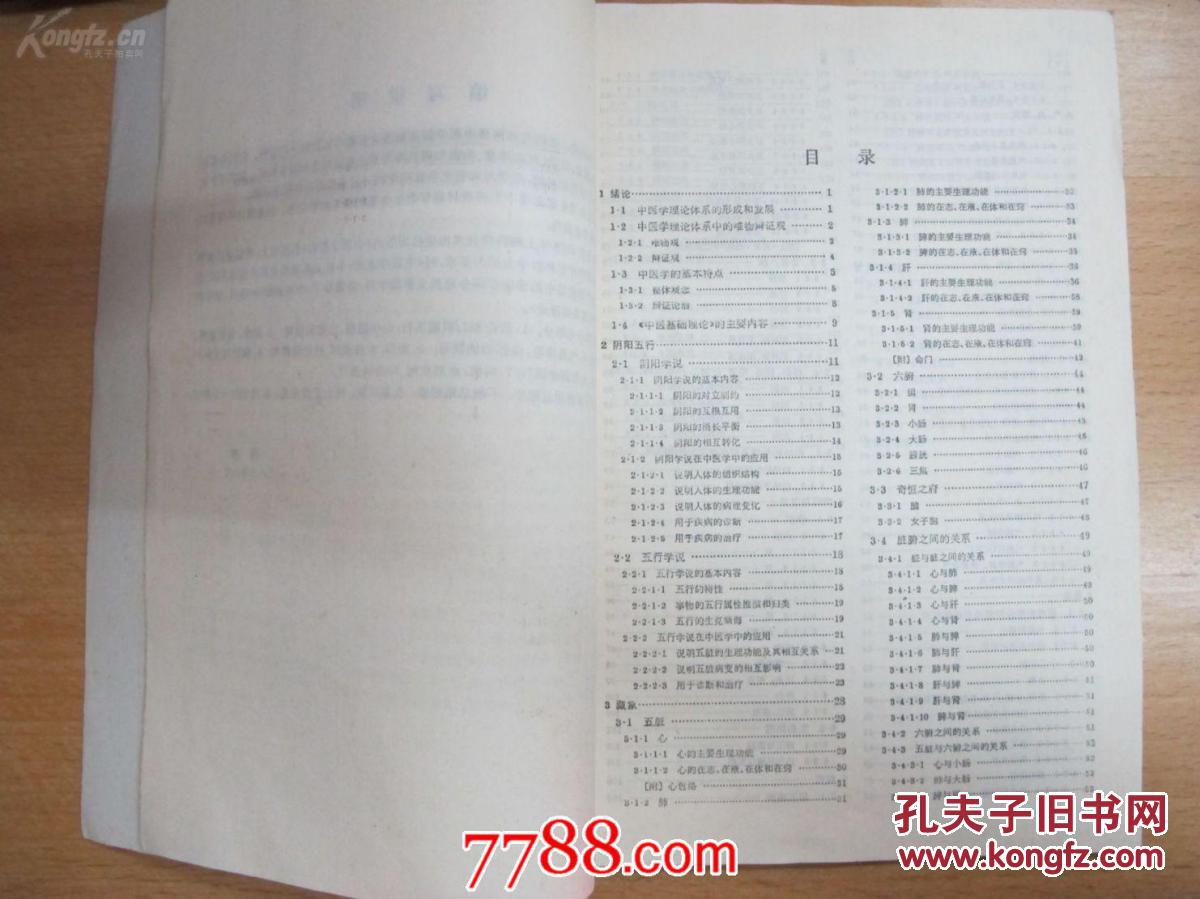 Kongfz.cn
孔夫子旧书网
目 录
1 绪论 1
1·1 中医学理论体系的形成和发展 1
1·2 中医学理论体系中的唯物辩证观 2
1·2·1 唯物观 2
1·2·2 辩证观 4
1·3 中医学的基本特点 5
1·3·1 整体观念 5
1·3·2 辩证论治 8
1·4 《中医基础理论》的主要内容 9
2 阴阳五行 11
2·1 阴阳学说 11
2·1·1 阴阳学说的基本内容 12
2·1·1·1 阴阳的对立制约 12
2·1·1·2 阴阳的互根互用 13
2·1·1·3 阴阳的消长平衡 13
2·1·1·4 阴阳的相互转化 14
2·1·2 阴阳学说在中医学中的应用 15
2·1·2·1 说明人体的组织结构 15
2·1·2·2 说明人体的生理功能 15
2·1·2·3 说明人体的病理变化 16
2·1·2·4 用于疾病的诊断 17
2·1·2·5 用于疾病的治疗 17
2·2 五行学说 18
2·2·1 五行学说的基本内容 18
2·2·1·1 五行的特性 18
2·2·1·2 事物的五行属性推演和归类 19
2·2·1·3 五行的生克乘侮 19
2·2·2 五行学说在中医学中的应用 21
2·2·2·1 说明五脏的生理功能及其相互关系 21
2·2·2·2 说明五脏病变的相互影响 22
2·2·2·3 用于诊断和治疗 23
3 藏象 28
3·1 五脏 29
3·1·1 心 29
3·1·1·1 心的主要生理功能 29
3·1·1·2 心的在志、在液、在体和在窍 30
〔附〕心包络 31
3·1·2 肺 31
3·1·2·1 肺的主要生理功能 32
3·1·2·2 肺的在志、在液、在体和在窍 33
3·1·3 脾 34
3·1·3·1 脾的主要生理功能 34
3·1·3·2 脾的在志、在液、在体和在窍 35
3·1·4 肝 36
3·1·4·1 肝的主要生理功能 36
3·1·4·2 肝的在志、在液、在体和在窍 38
3·1·5 肾 39
3·1·5·1 肾的主要生理功能 39
3·1·5·2 肾的在志、在液、在体和在窍 41
〔附〕命门 42
3·2 六腑 44
3·2·1 胆 44
3·2·2 胃 44
3·2·3 小肠 45
3·2·4 大肠 46
3·2·5 膀胱 46
3·2·6 三焦
3·3 奇恒之府 47
3·3·1 脑 47
3·3·2 女子胞 48
3·4 脏腑之间的关系 49
3·4·1 脏与脏之间的关系 49
3·4·1·1 心与肺 49
3·4·1·2 心与脾 49
3·4·1·3 心与肝 50
3·4·1·4 心与肾 50
3·4·1·5 肺与脾 50
3·4·1·6 肺与肝 50
3·4·1·7 肺与肾
3·4·1·8 肝与脾 51
3·4·1·9 肝与肾 51
3·4·1·10 脾与肾 51
3·4·2 六腑之间的关系
3·4·3 五脏与六腑之间的关系 52
3·4·3·1 心与小肠 52
3·4·3·2 肺与大肠 52
脾与
7788.com
孔夫子旧书网
www.kongfz.com